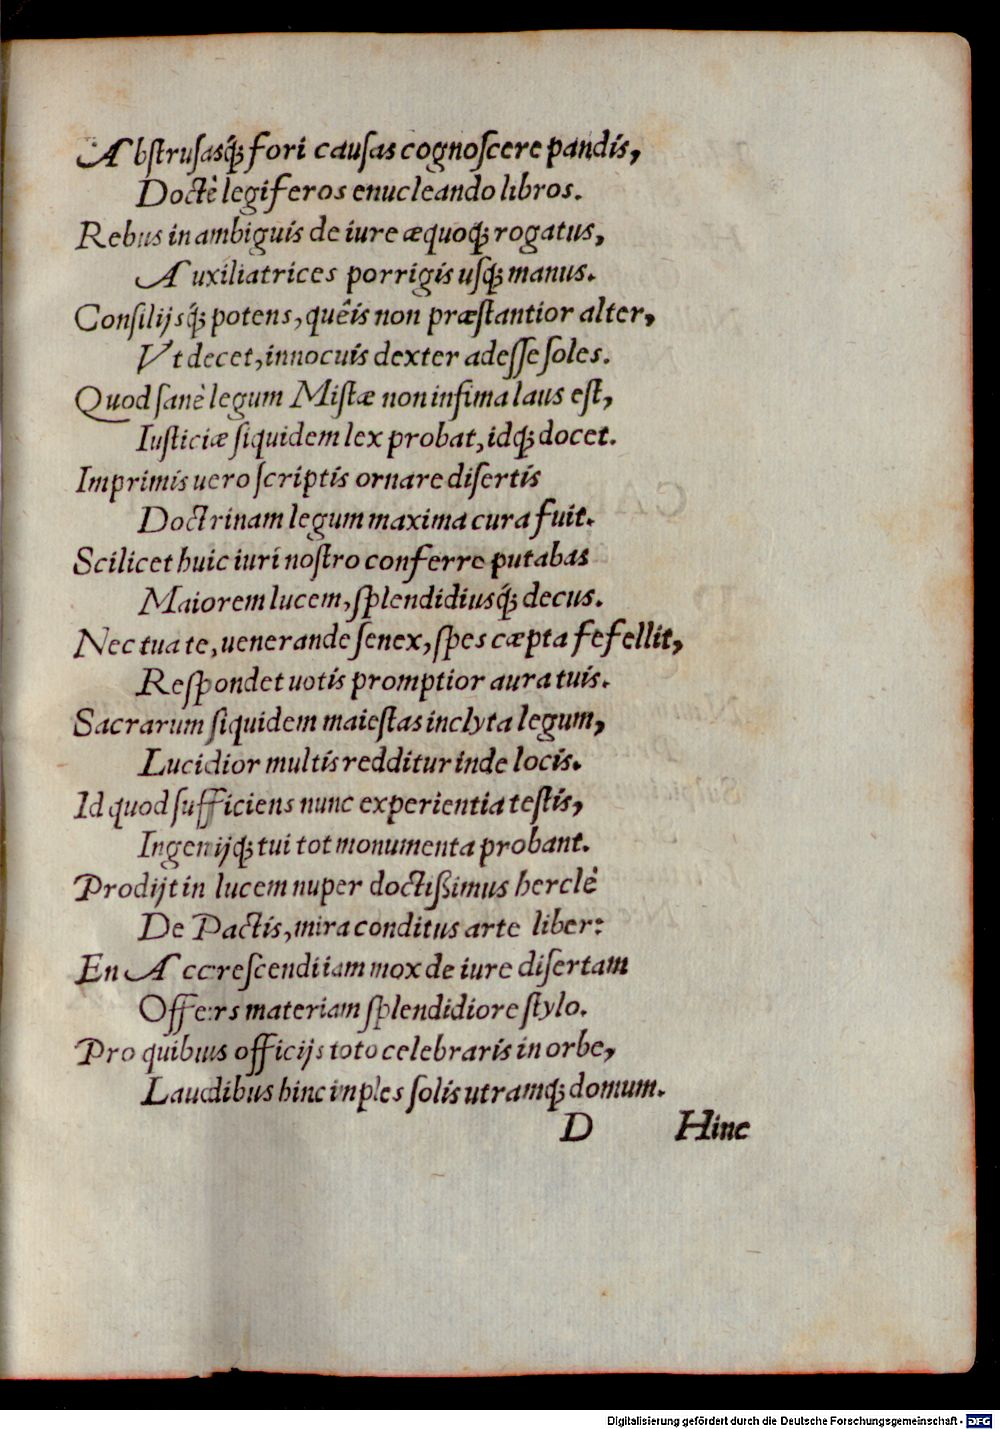 Abstrusasq́; fori causas cognoscere pandis,
Doctè legiferos enucleando libros.
Rebus in ambiguis de iure æquoq; rogatus,
Auxiliatrices porrigis usq; manus.
Consilijsq́; potens, quêis non præstantior alter,
Vt decet, innocuis dexter adesse soles.
Quod sanè legum Mistæ non infima laus est,
Iusticiæ siquidem lex probat, idq; docet.
Imprimis uero scriptis ornare disertis
Doctrinam legum maxima cura fuit.
Scilicet huic iuri nostro conferre putabas
Maiorem lucem, splendidiusq́; decus.
Nec tua te, uenerande senex, spes cæpta fefellit,
Respondet uotis promptior aura tuis.
Sacrarum siquidem maiestas inclyta legum,
Lucidior multis redditur inde locis.
Id quod sufficiens nunc experientia testis,
Ingenijq; tui tot monumenta probant.
Prodijt in lucem nuper doctißimus herclè
De Pactis, mira conditus arte liber:
En Accrescendi iam mox de iure disertam
Offers materiam splendidiore stylo.
Pro quibus officijs toto celebraris in orbe,
Laudibus hinc imples solis utramq; domum.
D Hinc
Digitalisierung gefördert durch die Deutsche Forschungsgemeinschaft - DFG